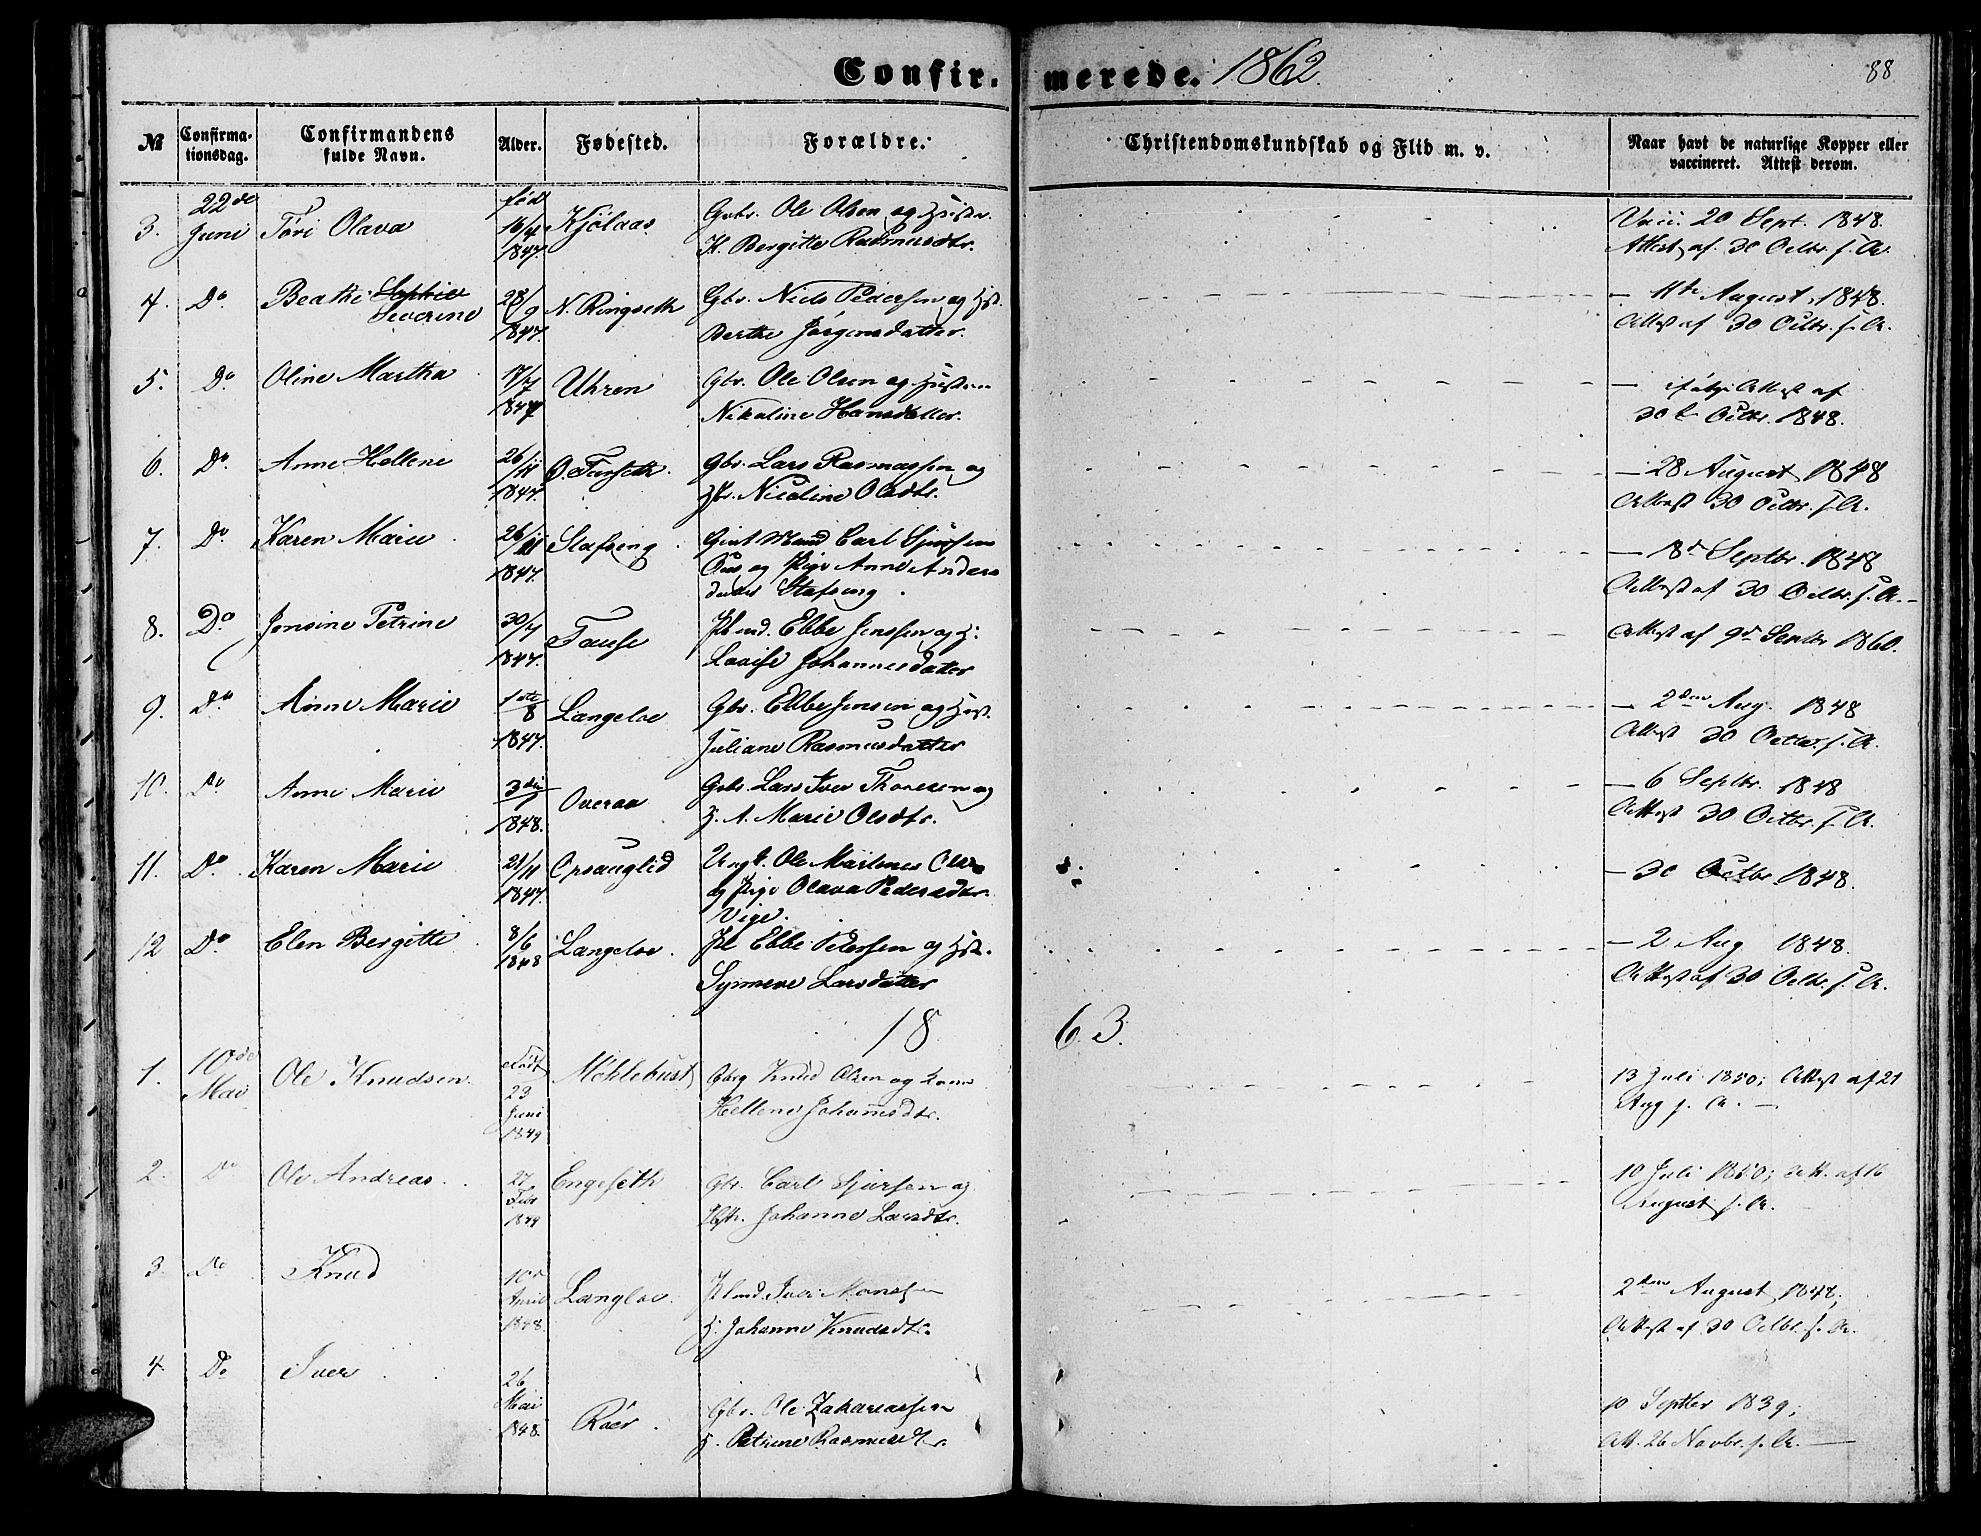 Confir. merede. 1862. 88
№ Confirma- tionsdag. Confirmandens fulde Navn. Alder. Fødested. Forældre. Christendomskundskab og Flid m. v. Naar havt de naturlige Kopper eller vaccineret. Attest derom.
3. 22de Juni Tøri Olava fød 16/4 1847. Kjølaas Gbr. Ole Olsen og Hustr.
K. Bergitte Rasmusdtr.
Vacc. 20 Sept. 1848.
Attest af 30 Octbr. s. A.
4. Do Beathe Sophie Severine 28/9 1847. N. Ringseth Gbr. Niels Pedersen og Hst.
Berthe Jørgensdatter.
— 11te August 1848.
Attest af 30 Octbr. s. A.
5. Do Oline Martha 17/7 1847 Uhren Gbr. Ole Olsen og Hustru
Nikoline Hansdatter.
— ifølge Attest af
30te Octbr. 1848.
6. Do Anne Hellene 26/11 1847. Ø. Furseth. Gbr. Lars Rasmussen og
Nicoline Olsdtr.
— 28 August 1848
Attest 30 Octbr. s. A.
7. Do Karen Marie 26/11 1847. Stafseng Gift Mand Carl Sjursen
og Pige Anne Anders
datter Stafseng
— 18de Septbr. 1848
Attest af 30 Octbr. s. A. -
8. Do Jensine Petrine 30/7 1847. Fause Plmd. Ebbe Jenssen og H.
Lovise Johannesdatter
Attest af 9de Septbr 1860.
9. Do Anne Marie 1ste/8 1847. Langeloe Gbr. Ebbe Jensen og Hust.
Juliane Rasmusdatter
— 2den Aug. 1848
Attest 30 Octbr. s. A.
10. Do Anne Marie 3die/1 1848. Overaa Gbr. Lars Iver Thoresen og
H. A. Marie Olsdtr.
— 6 Septbr. 1848
Attest 30 Octbr. s. A.
11. Do Karen Marie 21/11 1847. Opsanglid Ungk. Ole Martinus Olsen
og Pige Olava Pedersdtr.
Vige.
— 30 Octbr. 1848.
12 Do Elen Bergitte 8/6 1848 Langeloe. Pl Ebbe Petersen og Hst.
Synneve Larsdatter
— 2 Aug 1848.
Attest af 30 Octbr. s. A.
18 63.
1. 10de Mai Ole Knudsen. født 23 Juni 1849 Mehlebust Gbrg Knud Olsen og Kone
Hellene Johannsdtr.
13 Juli 1850; Attest af 21
Aug s. A. —
2. Do Ole Andreas 27 Febr 1849 Engeseth Gbr. Carl Sjursen og
Hstr. Johanne Larsdtr.
10 Juli 1850; Att. af 16
August s. A.
3. Do Knud 10de April 1848. Langeloe. Plmd. Iver Monssen
H. Johanne Knudsdtr.
2den August 1848;
Attest af 30 Octbr. s. A.
4. Do Iver 26 Mai 1848. Röer Gbr. Ole Zakariassen
H. Petrine Rasmusdtr.
10 Septber 1839;
Att. 26 Novbr. s. A. —